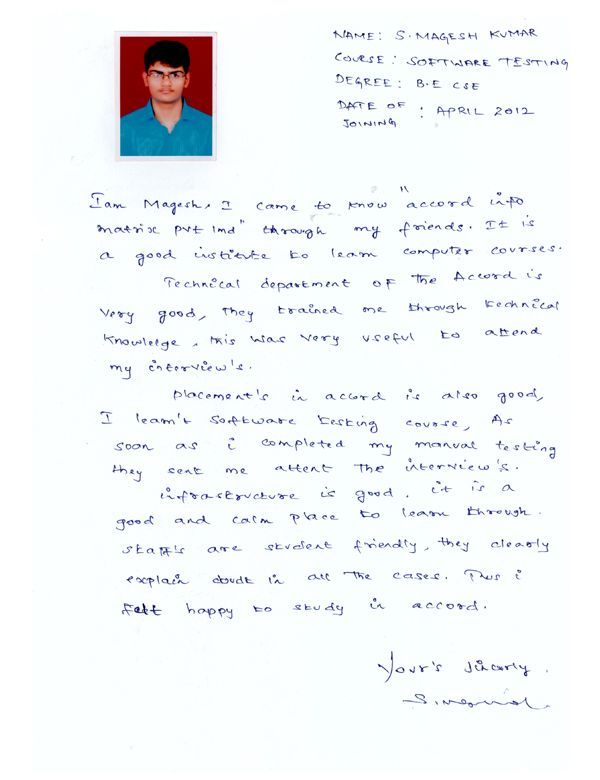 NAME: S. MAGESH KUMAR
COURSE: SOFTWARE TESTING
DEGREE: B.E CSE
DATE OF : APRIL 2012
JOINING
I am Magesh, I came to know "accord info
matrix pvt lmd" through my friends. It is
a good institute to learn computer courses.
Technical department of the Accord is
very good, they trained me through technical
knowledge, this was very useful to attend
my interview's.
Placement's in accord is also good,
I learn't software testing course, As
soon as i completed my manual testing
they sent me attent the interview's.
infrastructure is good. it is a
good and calm place to learn through.
staff's are student friendly, they clearly
explain doubt in all the cases. Thus i
felt happy to study in accord.
Your's sincerly.